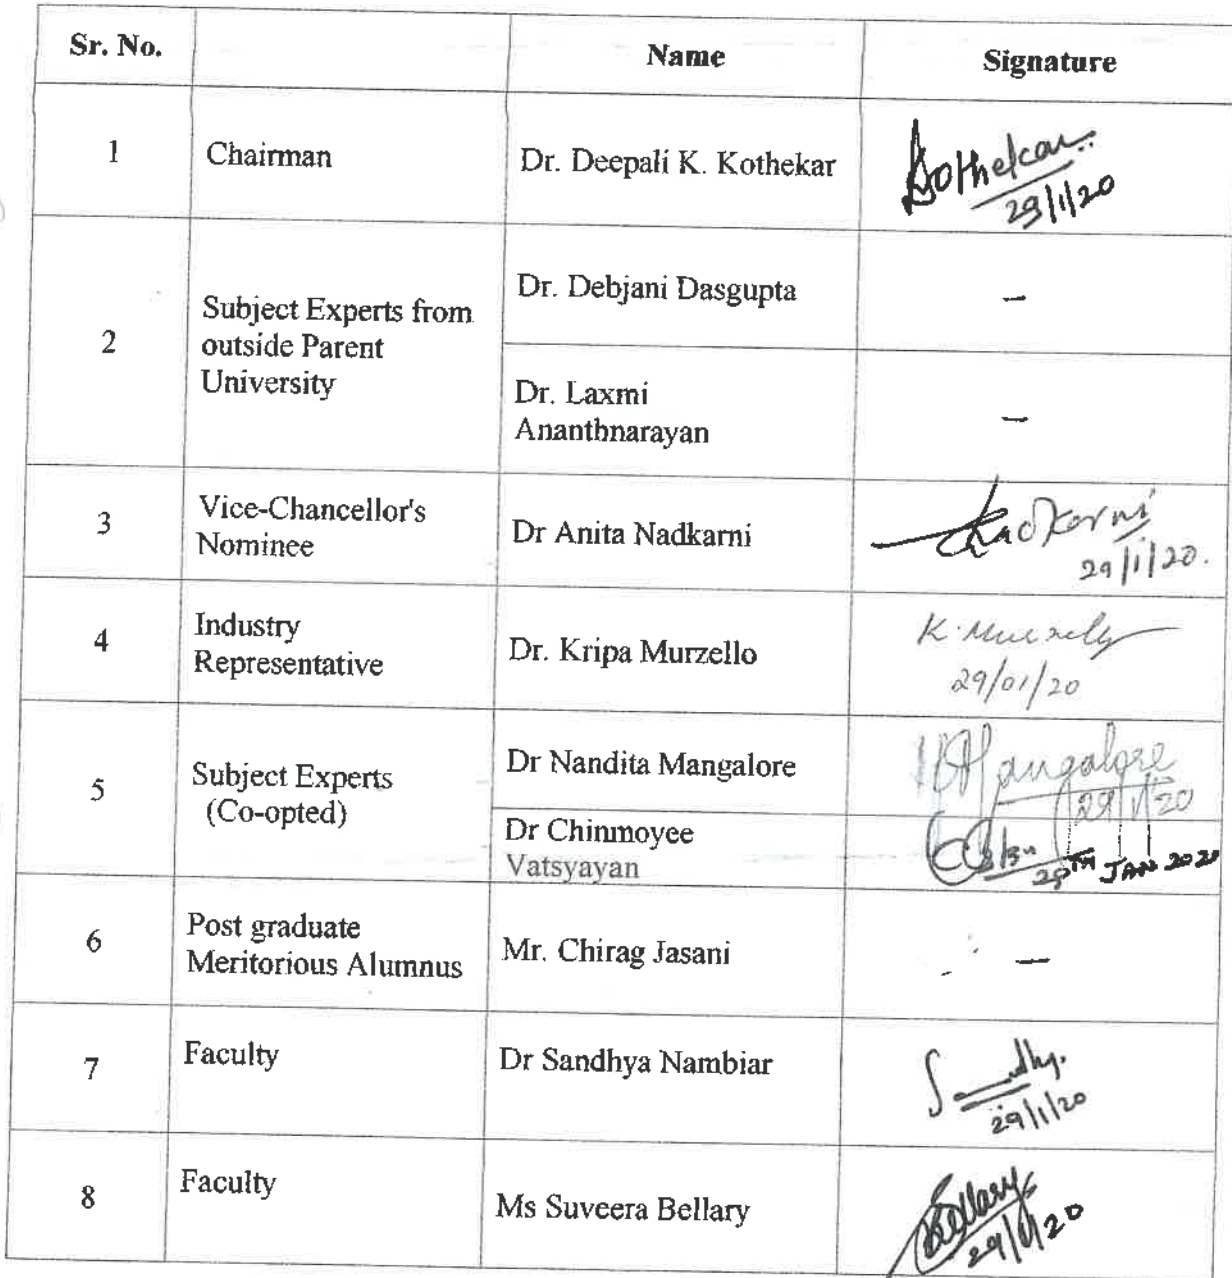 Sr. No. Name Signature
1 Chairman Dr. Deepali K. Kothekar Kothekar
29/1/20
2 Subject Experts from
outside Parent
University
Dr. Debjani Dasgupta –
Dr. Laxmi
Ananthnarayan –
3 Vice-Chancellor's
Nominee
Dr Anita Nadkarni Nadkarni
29/1/20.
4 Industry
Representative
Dr. Kripa Murzello K. Murzello
29/01/20
5 Subject Experts
(Co-opted)
Dr Nandita Mangalore Mangalore
29/1/20
Dr Chinmoyee
Vatsyayan
29TH JAN 2020
6 Post graduate
Meritorious Alumnus
Mr. Chirag Jasani –
7 Faculty Dr Sandhya Nambiar Sandhya.
29/1/20
8 Faculty Ms Suveera Bellary Bellary
29/1/20